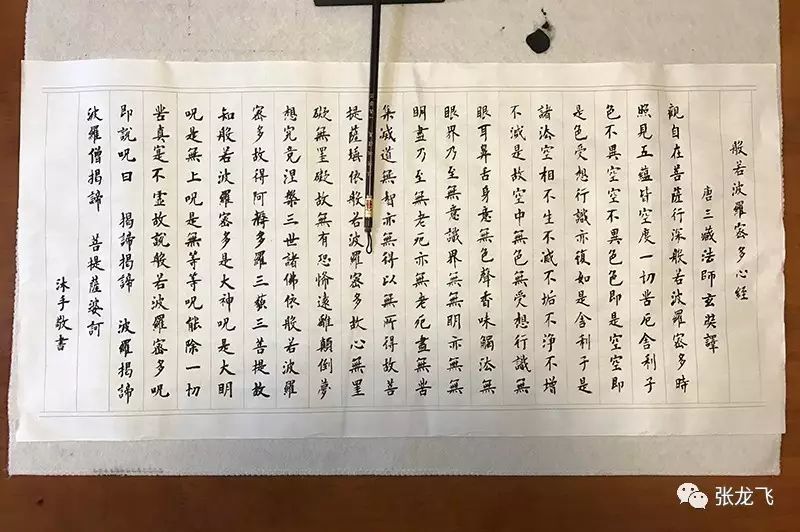 般若波羅密多心經
唐三藏法師玄奘譯
觀自在菩薩行深般若波羅密多時
照見五蘊皆空度一切苦厄舍利子
色不異空空不異色色即是空空即
是色受想行識亦復如是舍利子是
諸法空相不生不滅不垢不淨不增
不減是故空中無色無受想行識無
眼耳鼻舌身意無色聲香味觸法無
眼界乃至無意識界無無明亦無無
明盡乃至無老死亦無老死盡無苦
集滅道無智亦無得以無所得故菩
提薩埵依般若波羅密多故心無罣
礙無罣礙故無有恐怖遠離顛倒夢
想究竟涅槃三世諸佛依般若波羅
密多故得阿耨多羅三藐三菩提故
知般若波羅密多是大神呪是大明
呪是無上呪是無等等呪能除一切
苦真寔不虛故說般若波羅密多呪
即說呪曰 揭諦揭諦 波羅揭諦
波羅僧揭諦 菩提薩婆訶
沐手敬書
张龙飞